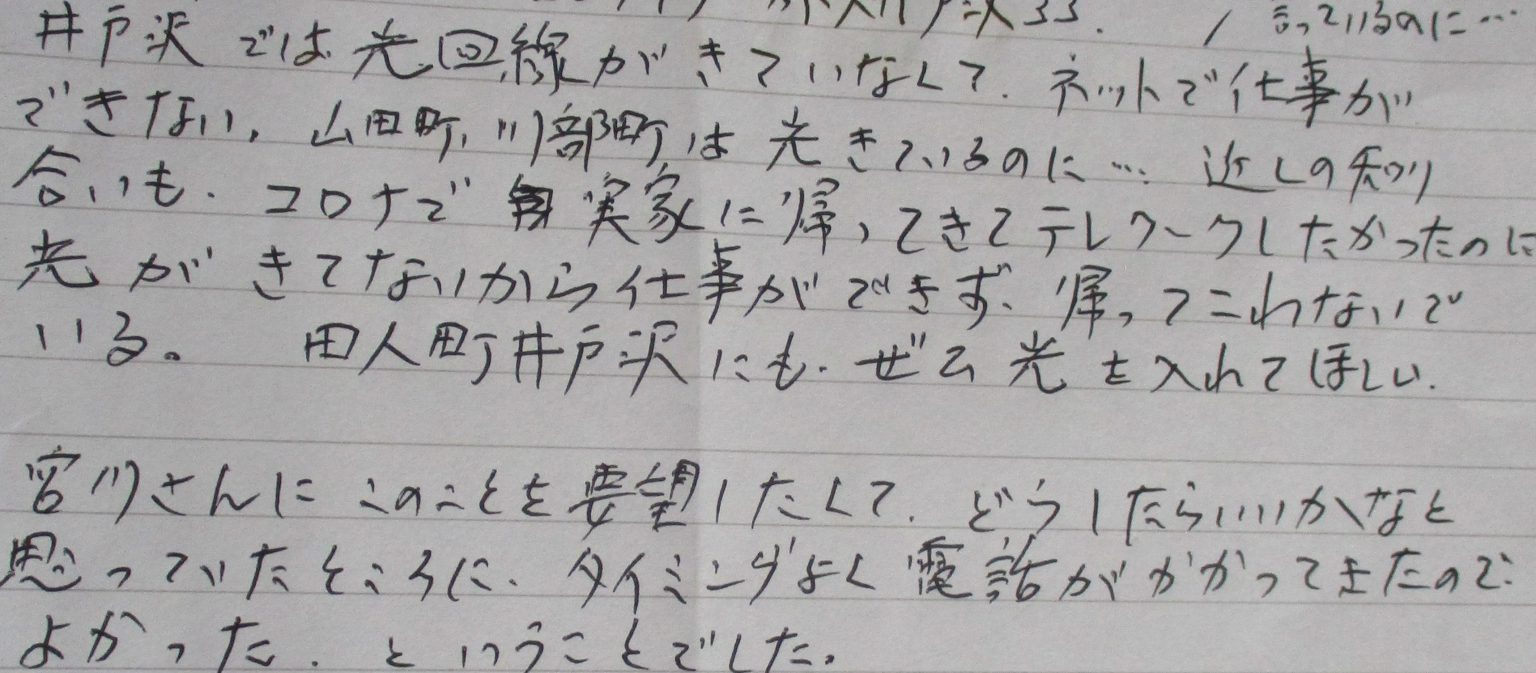 言っているのに…
井戸沢では光回線がきていなくて、ネットで仕事が
できない。山田町、川部町は光きているのに… 近しの知り
合いも、コロナで実家に帰ってきてテレワークしたかったのに
光がきてないから仕事ができず、帰ってこれないで
いる。 田人町井戸沢にも、ぜひ光を入れてほしい。
宮川さんにこのことを要望したくて、どうしたらいいかなと
思っていたところに、タイミングよく電話がかかってきたので
よかった、ということでした。